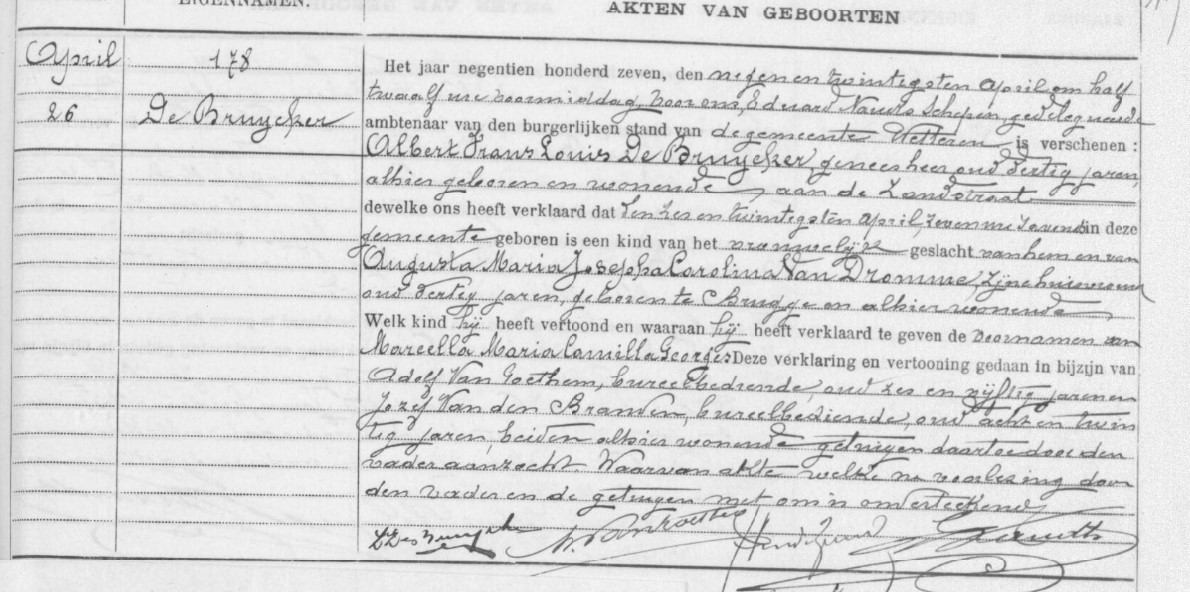 EIGENNAMEN.
AKTEN VAN GEBOORTEN
April
26
178
De Bruycker
Het jaar negentien honderd zeven, den negen en twintigsten April om half
twaalf ure voormiddag, voor ons, Eduard Schepen, gedelegueerde
ambtenaar van den burgerlijken stand van de gemeente Wetteren is verschenen :
Albert Frans Louis De Bruycker geneesheer, oud dertig jaren,
alhier geboren en wonende, aan de Zandstraat
dewelke ons heeft verklaard dat den zes en twintigsten April, zeven ure 's avonds in deze
gemeente geboren is een kind van het vrouwelijk geslacht van hem en van
Augusta Maria Josepha Carolina Van Dromme, zijne huisvrouw
oud dertig jaren, geboren te Brugge en alhier wonende
Welk kind hij heeft vertoond en waaraan hij heeft verklaard te geven de voornamen van
Marcella Maria Camilla Georges Deze verklaring en vertooning gedaan in bijzijn van
Adolf Van Goethem, bureelbediende, oud zes en vijftig jaren en
Jozef Van den Branden, bureelbediende, oud acht en twin
tig jaren, beiden alhier wonende getuigen daartoe door den
vader aanzocht. Waarvan akte welke na voorlezing door
den vader en de getuigen met ons is onderteekend